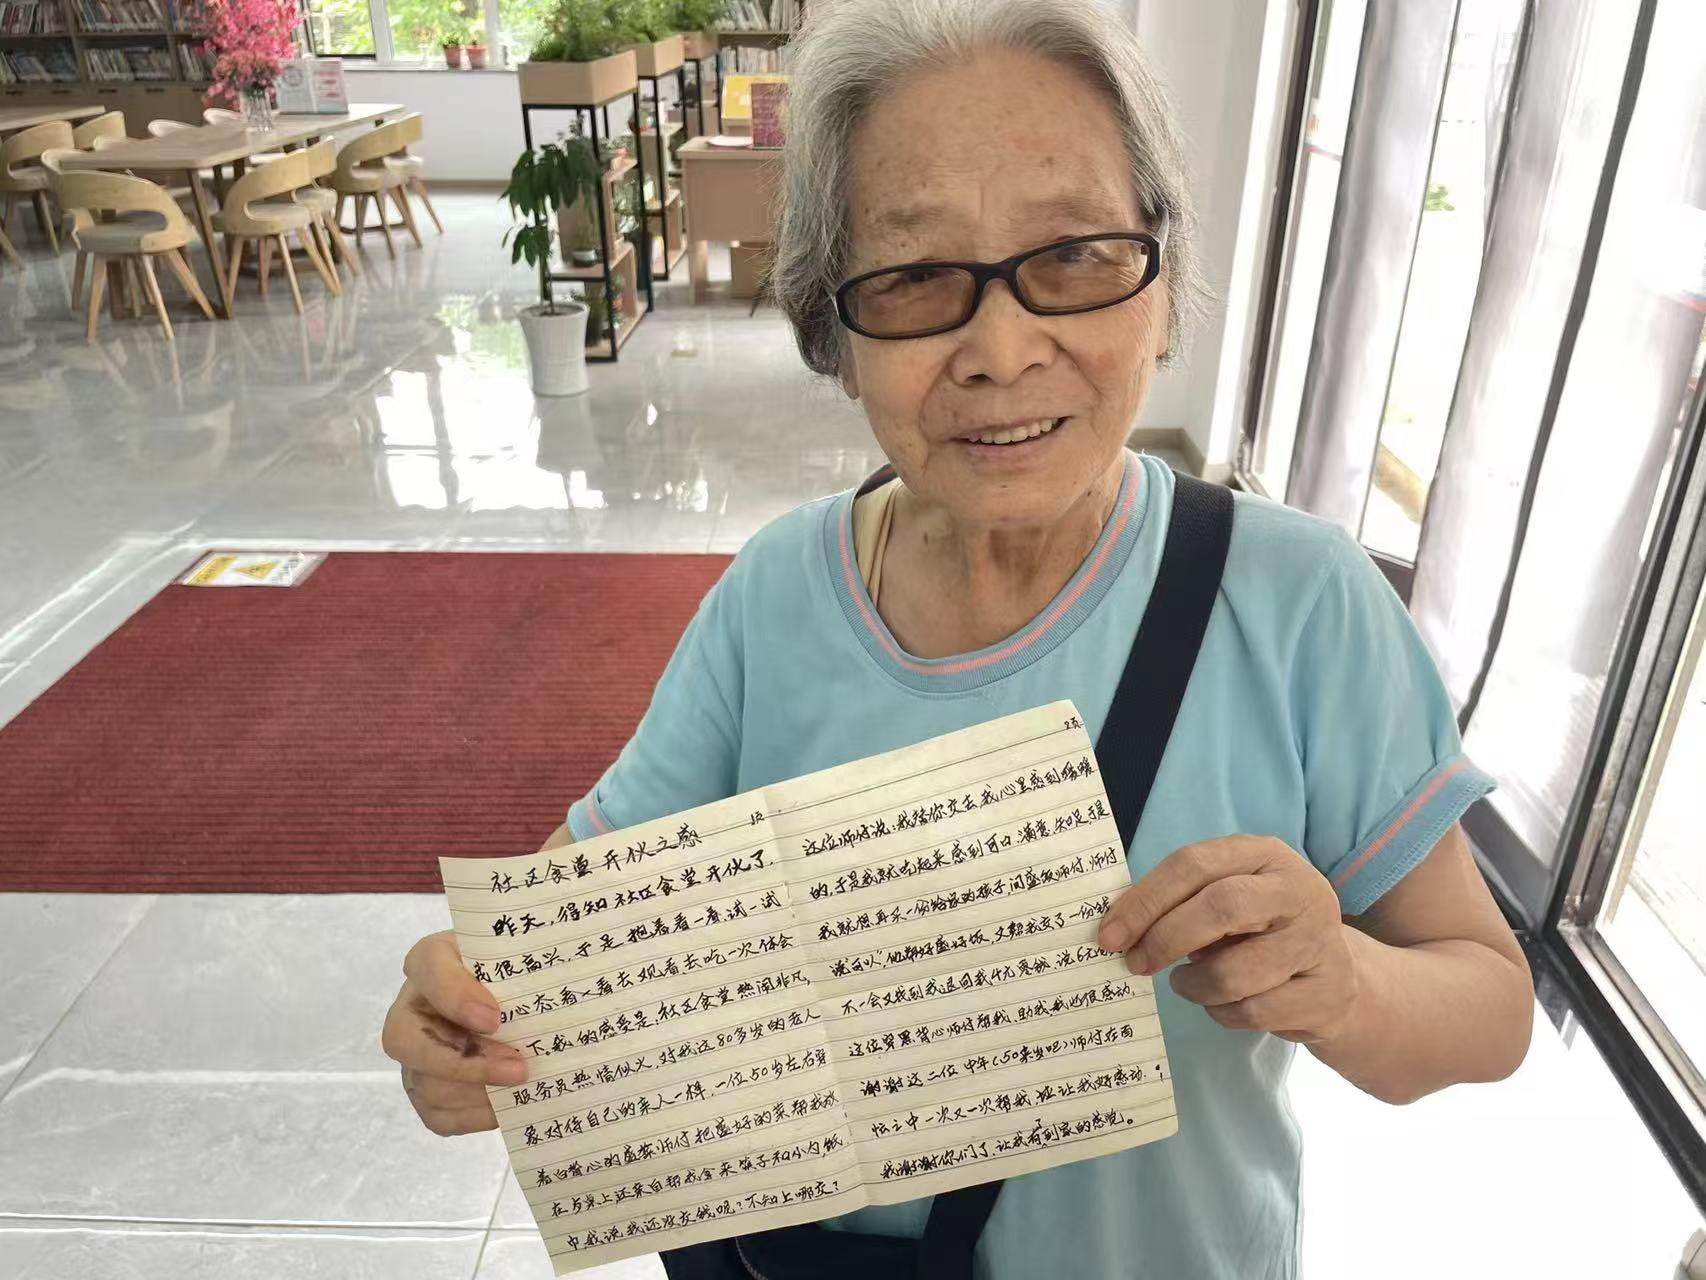 1页.
社区食堂开伙之感
昨天,得知社区食堂开伙了.
我很高兴,于是抱着看一看,试一试
心态,看一看去观看去吃一次体会
下。我的感受是:社区食堂热闹非凡,
服务员热情似火,对我这80多岁的老人
象对待自己的亲人一样,一位50岁左右穿
着白背心的盛菜师付把盛好的菜帮我放
在与桌上还亲自帮我拿来筷子和小勺,纸
巾,我说我还没交钱呢?不知上哪交?
2页
这位师付说:我替你交去,我心里感到暖暖
的,于是我就吃起来感到可口.满意.知足,于是
我就想再买一份给家的孩子,问盛饭师付.师付
说"可以",他帮好盛好饭,又帮我交了一份钱
不一会又找到我退回我4元零钱,说6元
这位穿黑背心师付帮我.助我,我也很感动,
谢谢这二位中年(50来岁吧)师付在百
忙之中一次又一次帮我,让我好感动.;
我谢谢你们了,让我有到家的感觉。